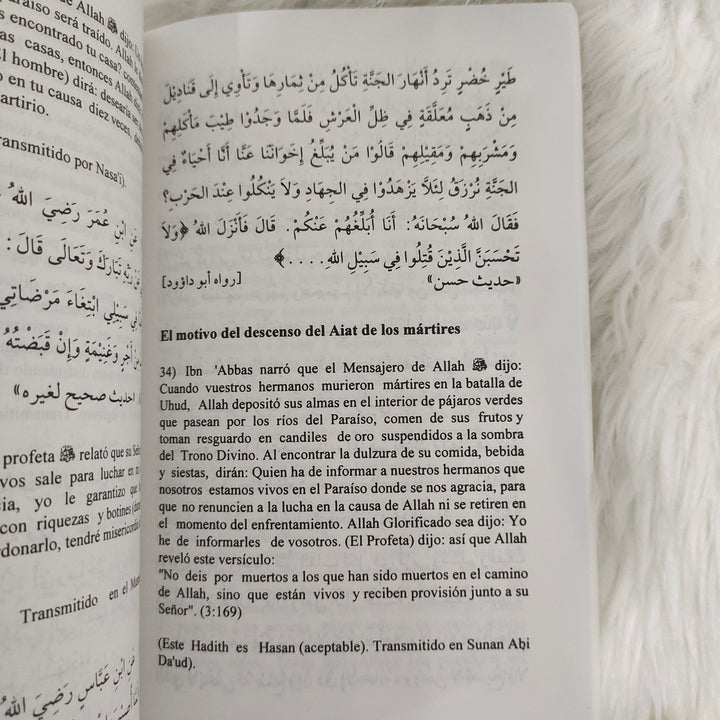 de Allah ﷺ dijo:
paraíso será traído. Allah
has encontrado tu casa?
casas, entonces Allah
(El hombre) dirá: desearía
en tu causa diez veces,
martirio.
Transmitido por Nasa'i).
عَنِ ابْنِ عُمَرَ رَضِيَ اللهُ
رَبِّهِ تَبَارَكَ وَتَعَالَى قَالَ :
فِي سَبِيلِي ابْتِغَاءَ مَرْضَاتِي
مِنْ أَجْرٍ وَغَنِيمَةٍ وَإِنْ قَبَضْتُهُ
حديث صحيح لغيره»
profeta ﷺ relató que su
vos sale para luchar en
cia, yo le garantizo que
con riquezas y botines
donarlo, tendré
Transmitido en el
عَنِ ابْنِ عَبَّاسٍ رَضِيَ اللهُ
طَيْرٍ خُضْرٍ تَرِدُ أَنْهَارَ الجَنَّةِ تَأْكُلُ مِنْ ثِمَارِهَا وَتَأْوِي إِلَى قَنَادِيلَ
مِنْ ذَهَبٍ مُعَلَّقَةٍ فِي ظِلِّ الْعَرْشِ فَلَمَّا وَجَدُوْا طِيْبَ مَأْكَلِهِمْ
وَمَشْرَبِهِمْ وَمَقِيْلِهِمْ قَالُوْا مَنْ يُبَلِّغُ إِخْوَانَنَا عَنَّا أَنَّا أَحْيَاءٌ فِي
الجَنَّةِ نُرْزَقُ لِئَلَّا يَزْهَدُوْا فِي الجِهَادِ وَلَا يَنْكُلُوا عِنْدَ الحَرْبِ؟
فَقَالَ اللهُ سُبْحَانَهُ: أَنَا أُبَلِّغُهُمْ عَنْكُمْ. قَالَ فَأَنْزَلَ اللهُ ﴿وَلَا
تَحْسَبَنَّ الَّذِيْنَ قُتِلُوا فِي سَبِيْلِ اللهِ. . . . ﴾
«حديث حسن» [رواه أبو داؤود]
El motivo del descenso del Aiat de los mártires
34) Ibn 'Abbas narró que el Mensajero de Allah ﷺ dijo:
Cuando vuestros hermanos murieron mártires en la batalla de
Uhud, Allah depositó sus almas en el interior de pájaros verdes
que pasean por los ríos del Paraíso, comen de sus frutos y
toman resguardo en candiles de oro suspendidos a la sombra
del Trono Divino. Al encontrar la dulzura de su comida, bebida
y siestas, dirán: Quien ha de informar a nuestros hermanos que
nosotros estamos vivos en el Paraíso donde se nos agracia, para
que no renuncien a la lucha en la causa de Allah ni se retiren en
el momento del enfrentamiento. Allah Glorificado sea dijo: Yo
he de informarles de vosotros. (El Profeta) dijo: así que Allah
reveló este versículo:
"No deis por muertos a los que han sido muertos en el camino
de Allah, sino que están vivos y reciben provisión junto a su
Señor". (3:169)
(Este Hadith es Hasan (aceptable). Transmitido en Sunan Abi
Da'ud).